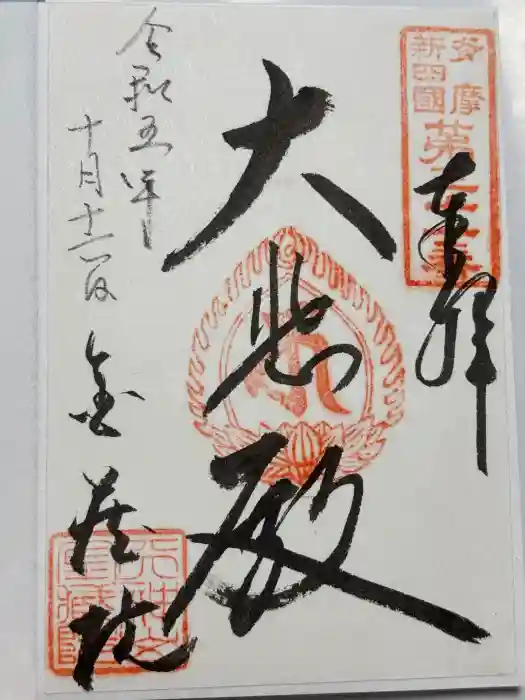 奉拝
多摩
新四國
大悲殿
令和五年
十月十一日
金蔵院